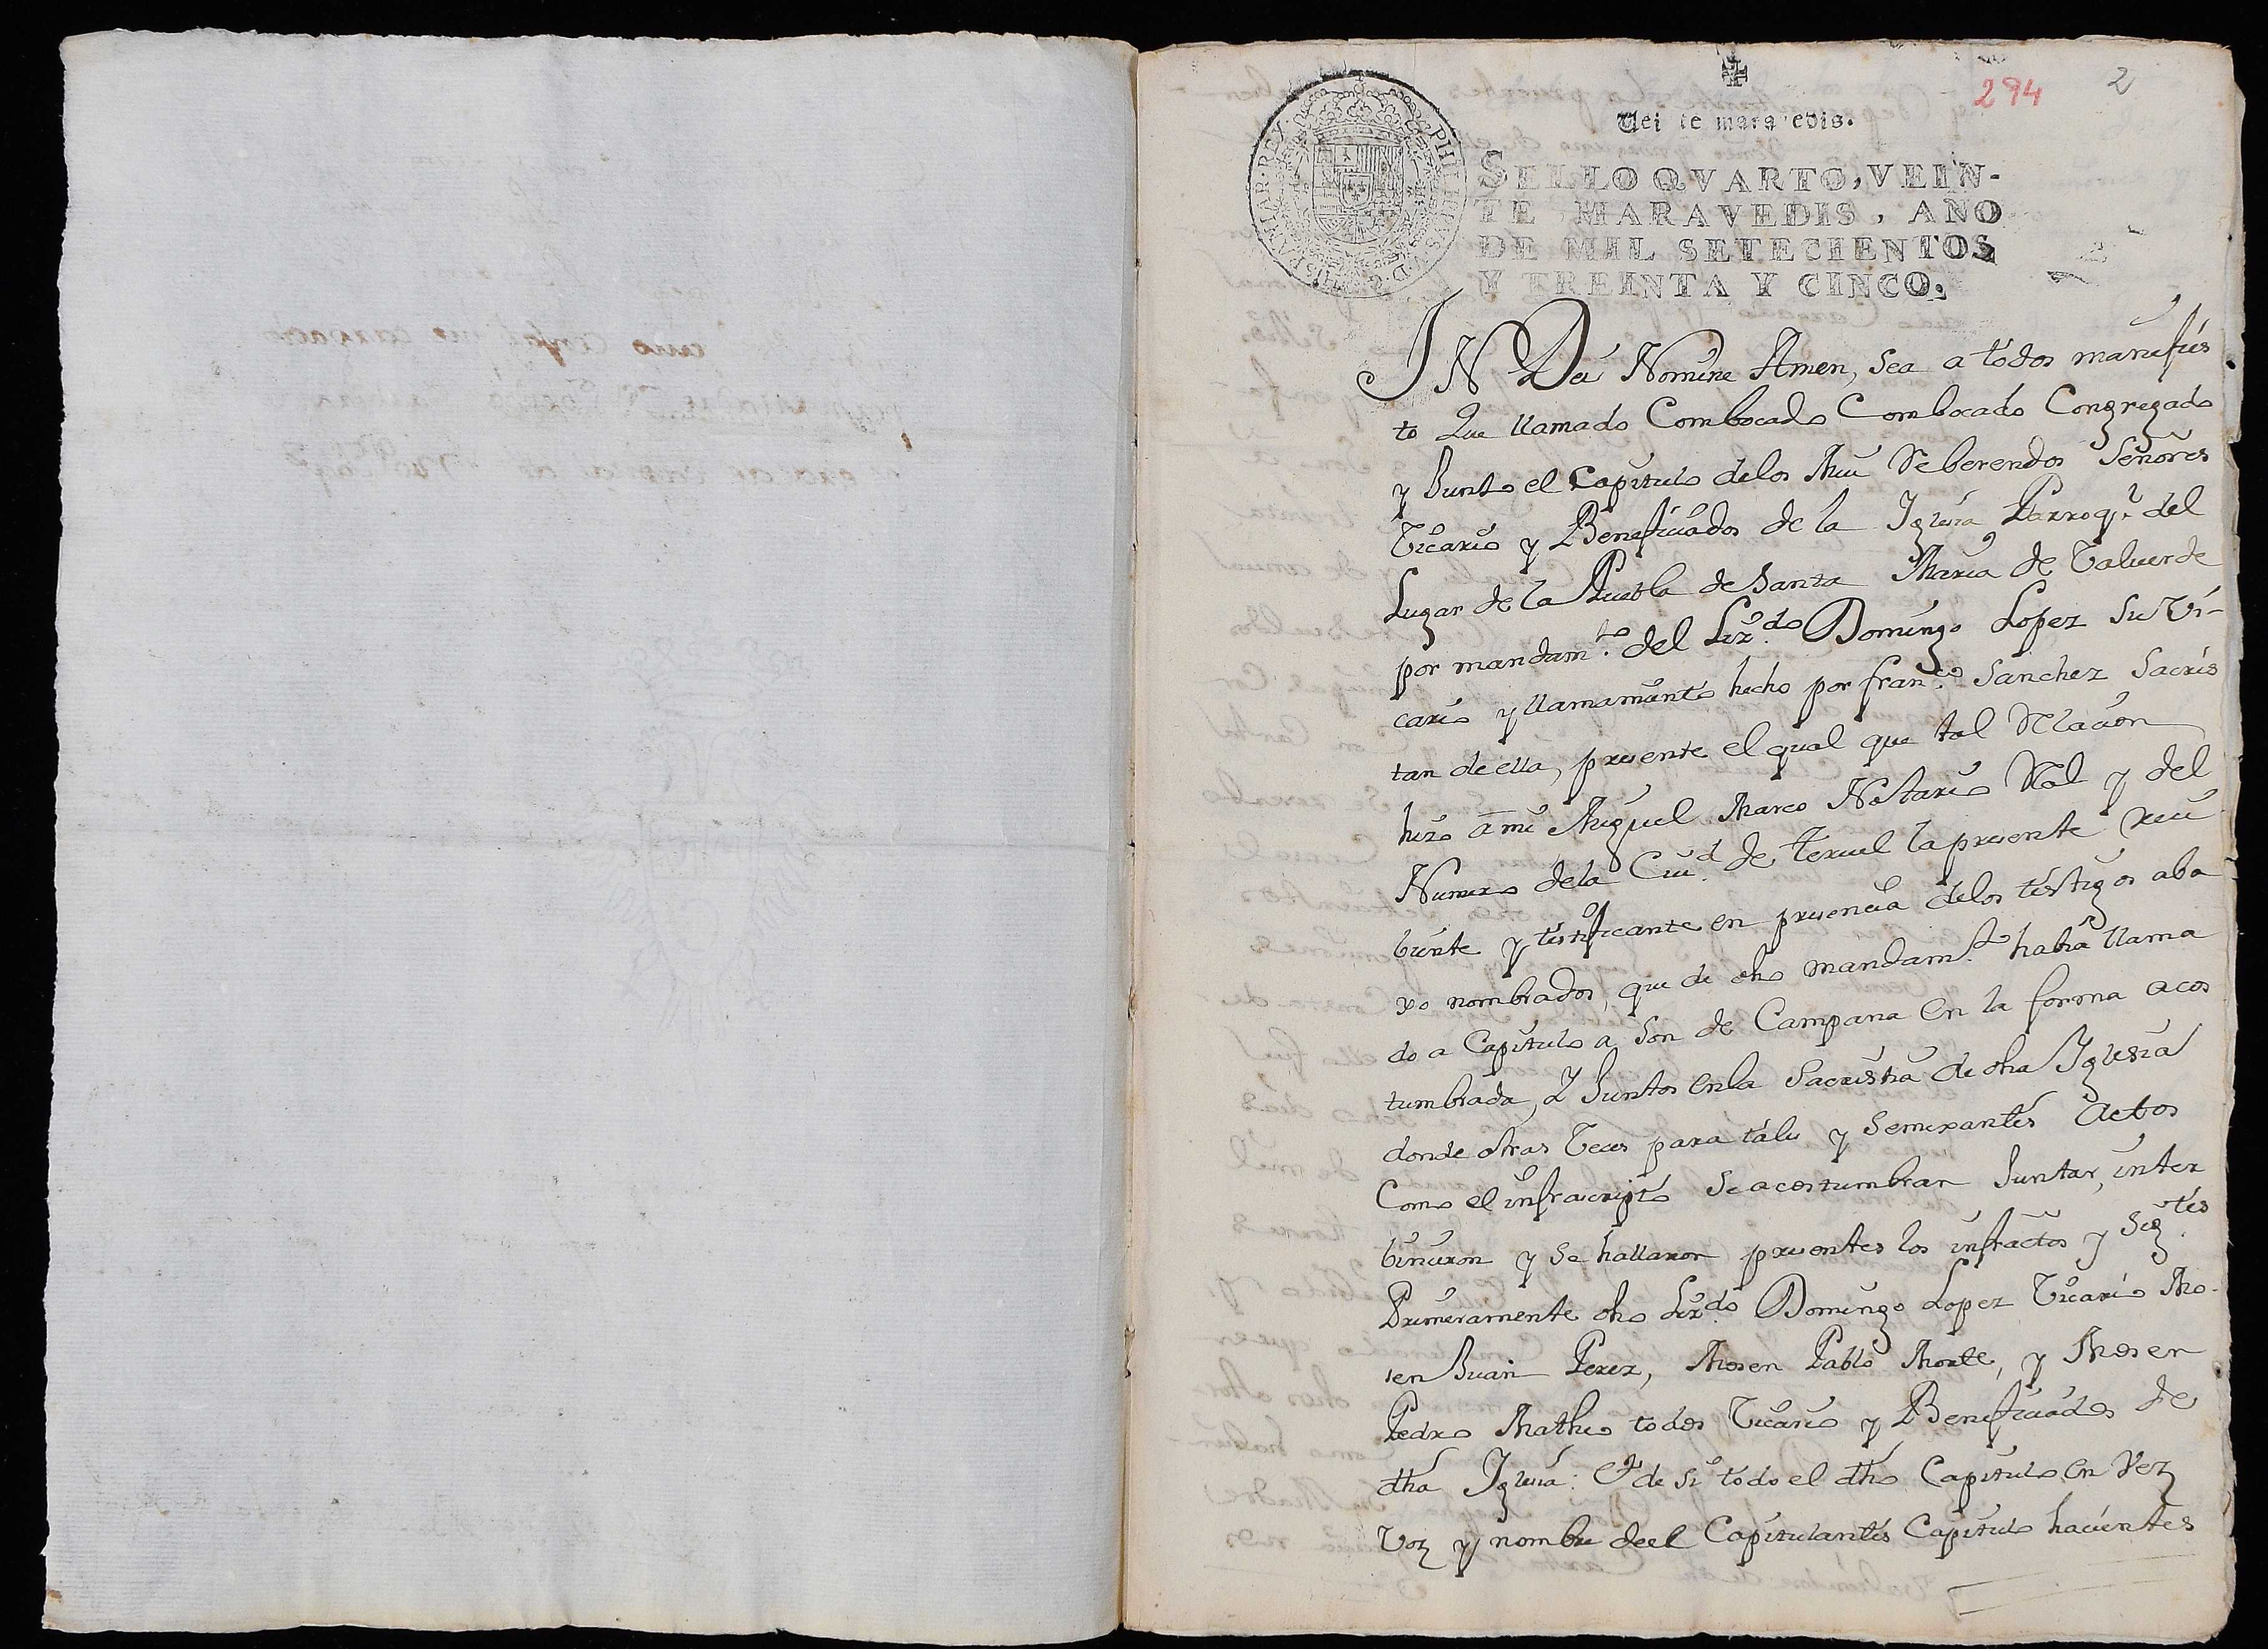 294 2
Vei te mara edis.
SELLO QVARTO, VEIN-
TE MARAVEDIS, AÑO
DE MIL SETECIENTOS
Y TREINTA Y CINCO.
PHILIPPUS V D G HISPANIAR REX
IN Dei Nomine Amen, sea a todos manifies
to Que llamado Combocado Combocado Congregado
y Junto el Capitulo delos Mui Reberendos Señores
Vicario y Beneficiados de la Iglesia Parroq.l del
Lugar de la Puebla de Santa Maria de Valuerde
por mandam.to del Liz.do Domingo Lopez su Vi-
cario y llamamiento hecho por fran.co Sanchez Sacris
tan de ella, presente el qual que tal Relacion
hizo a mi Miguel Marco Notario Real y del
Numero dela Ciu.d de Teruel la presente reci
biente y testificante en presencia delos testigos aba
xo nombrados, que de dho mandam.to habia llama
do a Capitulo a son de Campana en la forma acos
tumbrada, Y Juntos en la Sacristia de dha Iglesia
donde otras Veces para tales y Semexantes Actos
Como el infrascripto se acostumbran Juntar, inter
binieron y se hallaron presentes los infractos y Sig.tes
Primeramente dho Liz.do Domingo Lopez Vicario Mo-
sen Juan Perez, Mosen Pablo Monte, y Mosen
Pedro Matheo todos Vicario y Beneficiados de
dha Iglesia: Et de si todo el dho Capitulo en Vez
Voz y nombre deel Capitulantes Capitulo hacientes